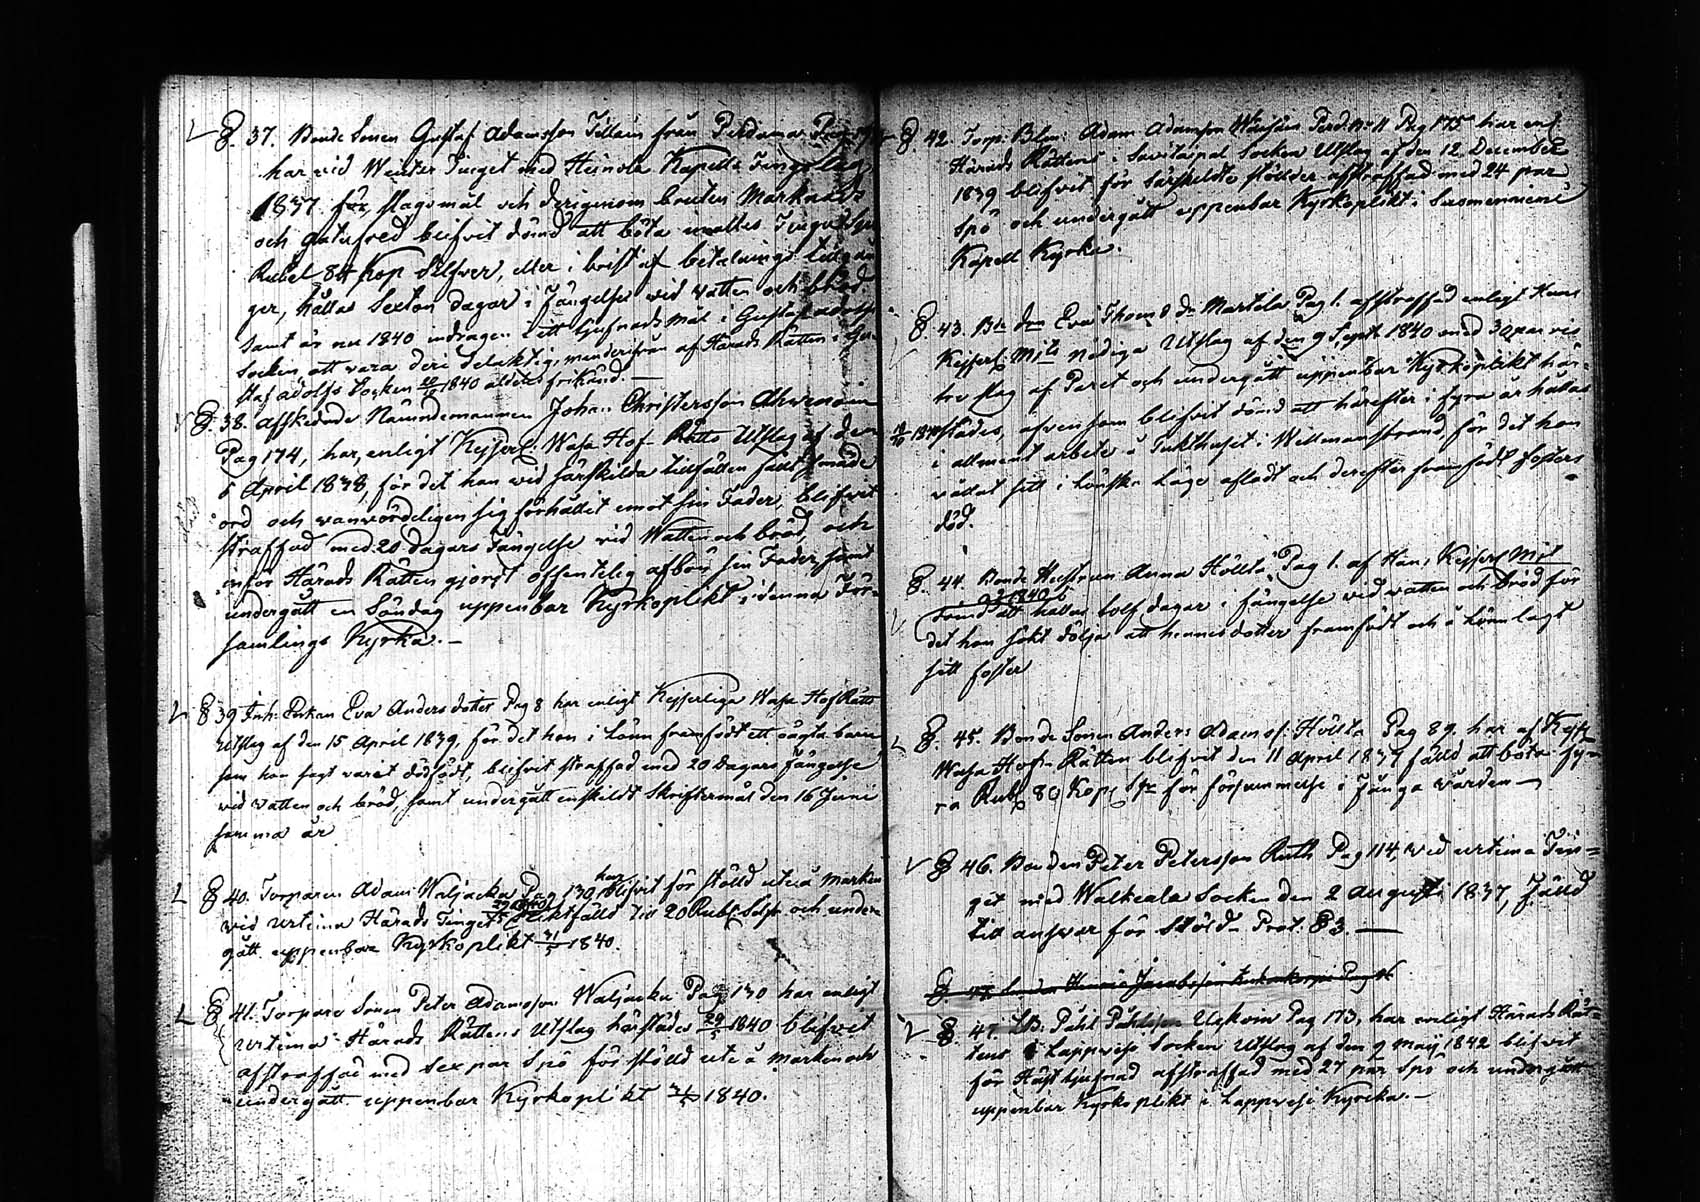 §. 37. Bonde Sonen Gustaf Adamsson Tillain från Perdamar Pag
har vid Winter Tinget med Heinola Kapells Tingslag
1837 för slagsmål och derigenom bruten Marknads
och gatufred blifvit dömd att böta
Rubel 84 Kop Silfver, eller i brist af betalnings tillgån
ger, hållas Sexton dagar i fängelse vid vatten och bröd
samt är nu 1840 indragen i ett tjufnads mål i Gustaf adolfs
Socken att vara deri delaktig, men derifrån af Härads Rätten i Gu-
staf adolfs Socken 1840 aldeles frikänd. —
§. 38. Afskedade Nämndemannen Johan Christersson Ahvonoin
Pag 174, har, enligt Kejserl. Wasa Hof-Rätts Utslag af den
5 April 1838, för det han vid särskilda tillfällen fält smäde
ord och vanvördeligen sig förhållit emot sin Fader, blifvit
straffad med 20 dagars Fängelse vid Watten och bröd, och
inför Härads Rätten gjort offentelig afbön sin Fader, samt
undergått en Söndag uppenbar Kyrkoplikt i denna För-
samlings Kyrka. —
§ 39 Inh. Enkan Eva Anders dotter Pag 8 har enligt Kejserliga Wasa Hof Rätts
Utslag af den 15 April 1839, för det hon i lönn framfödt ett oägta barn
som hon sagt varit dödfödt, blifvit straffad med 20 dagars fängelse
vid vatten och bröd, samt undergått enskildt Skriftermål den 16 Junii
samma år
§ 40. Torparen Adam Waljacka Pag 130, har blifvit för stöld ute å marken
vid urtima Härads Tinget sakfälld till 20 Rub. Solfr och under-
gått uppenbar Kyrkoplikt 31/5 1840.
§ 41. Torpare Sonen Peter Adamsson Waljacka Pag 130 har enligt
urtima Härads Rättens Utslag härstädes 29/5 1840 blifvit
afstraffad med sex par Spö för stölld ute å marken och
undergått uppenbar Kyrkoplikt 31/5 1840.
§ 42. Torp. Adam Adamsson Pag 175 har enl
Härads Rättens i Savitaipal Socken Utslag af den 12 December
1839 blifvit för särskildte stölder afstraffad med 24 par
Spö och undergått uppenbar Kyrkoplikt i Suomenniemi
Kapell Kyrka.
§. 43. Eva Thoms Dr Martila Pag 1. afstraffad enligt Hans
Kejserl. Mits Nådiga Utslag af den 9 Sept. 1840 med 30 par ris
tre slag af Paret och undergått uppenbar Kyrkoplikt här-
städes, äfven som blifvit dömd att härefter i fyra år hållas
i allment arbete å Tukthuset i Willmanstrand, för det hon
vållat sitt i lönska läge afladt och derefter framfödt fosters
död.
§. 44. Bonde Hustrun Anna Höllta Pag 1. af Hans Kejserl Mit
dömd att hållas tolf dagar i fängelse vid vatten och bröd för
det hon sökt dölja att hennes dotter framfödt och å lönn lagt
sitt foster
§. 45. Bonde Sonen Anders Adamss. Höllta Pag 89. har af Kejs
Wasa Hof-Rätten blifvit den 11 April 1839 fälld att böta fy-
ra Rub. 80 Kop Sfr för försummelse i Fånga vården —
§ 46. Bonden Peter Petersson Ruth Pag 114, vid urtima Tin-
get med Walkeala Socken den 2 Augusti 1837, fälld
till ansvar för Stöld. Prot. § 3. —
§. 47. Påhl Påhlsson Uskoin Pag 173, har enligt Härads Rät-
tens i Lappvesi Socken Utslag af den 9 Maij 1842 blifvit
för Häst tjufnad afstraffad med 27 par Spö och undergått
uppenbar Kyrkoplikt i Lappvesi Kyrka. —